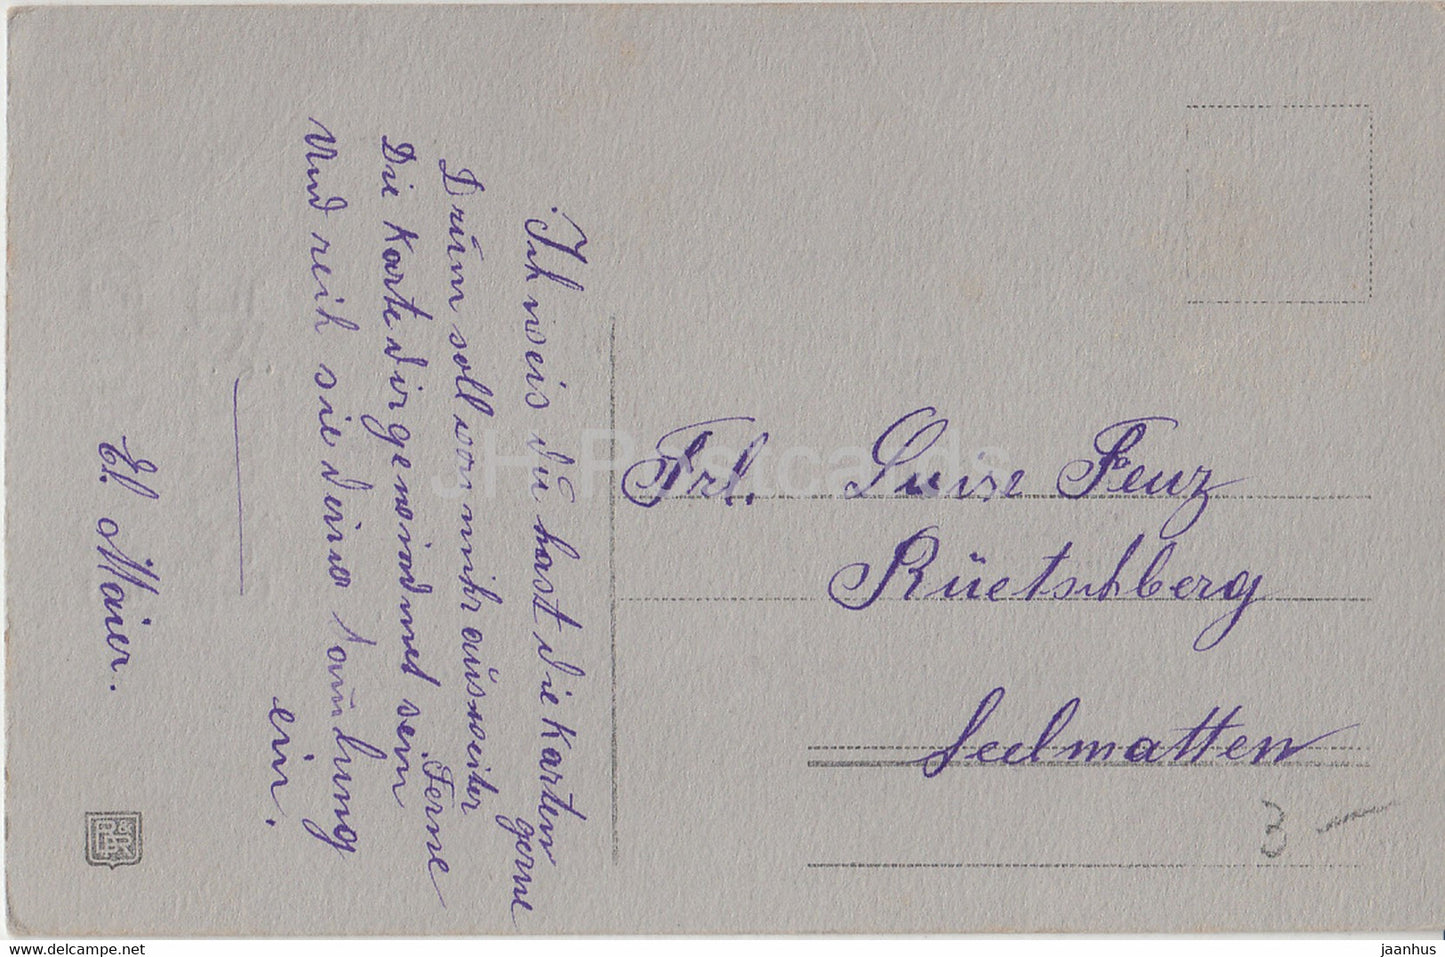 Ich weis du hast die Karten
gerne
Drum soll von mihr aus weiter
Ferne
Die Karte dir gewindmet sein
Und reih sie deine Samlung
ein.
El. Maier.
Frl. Luise Feuz
Rüetschberg
Seelmatten
3 —
HPostcards
jaanhus
www.delcampe.net